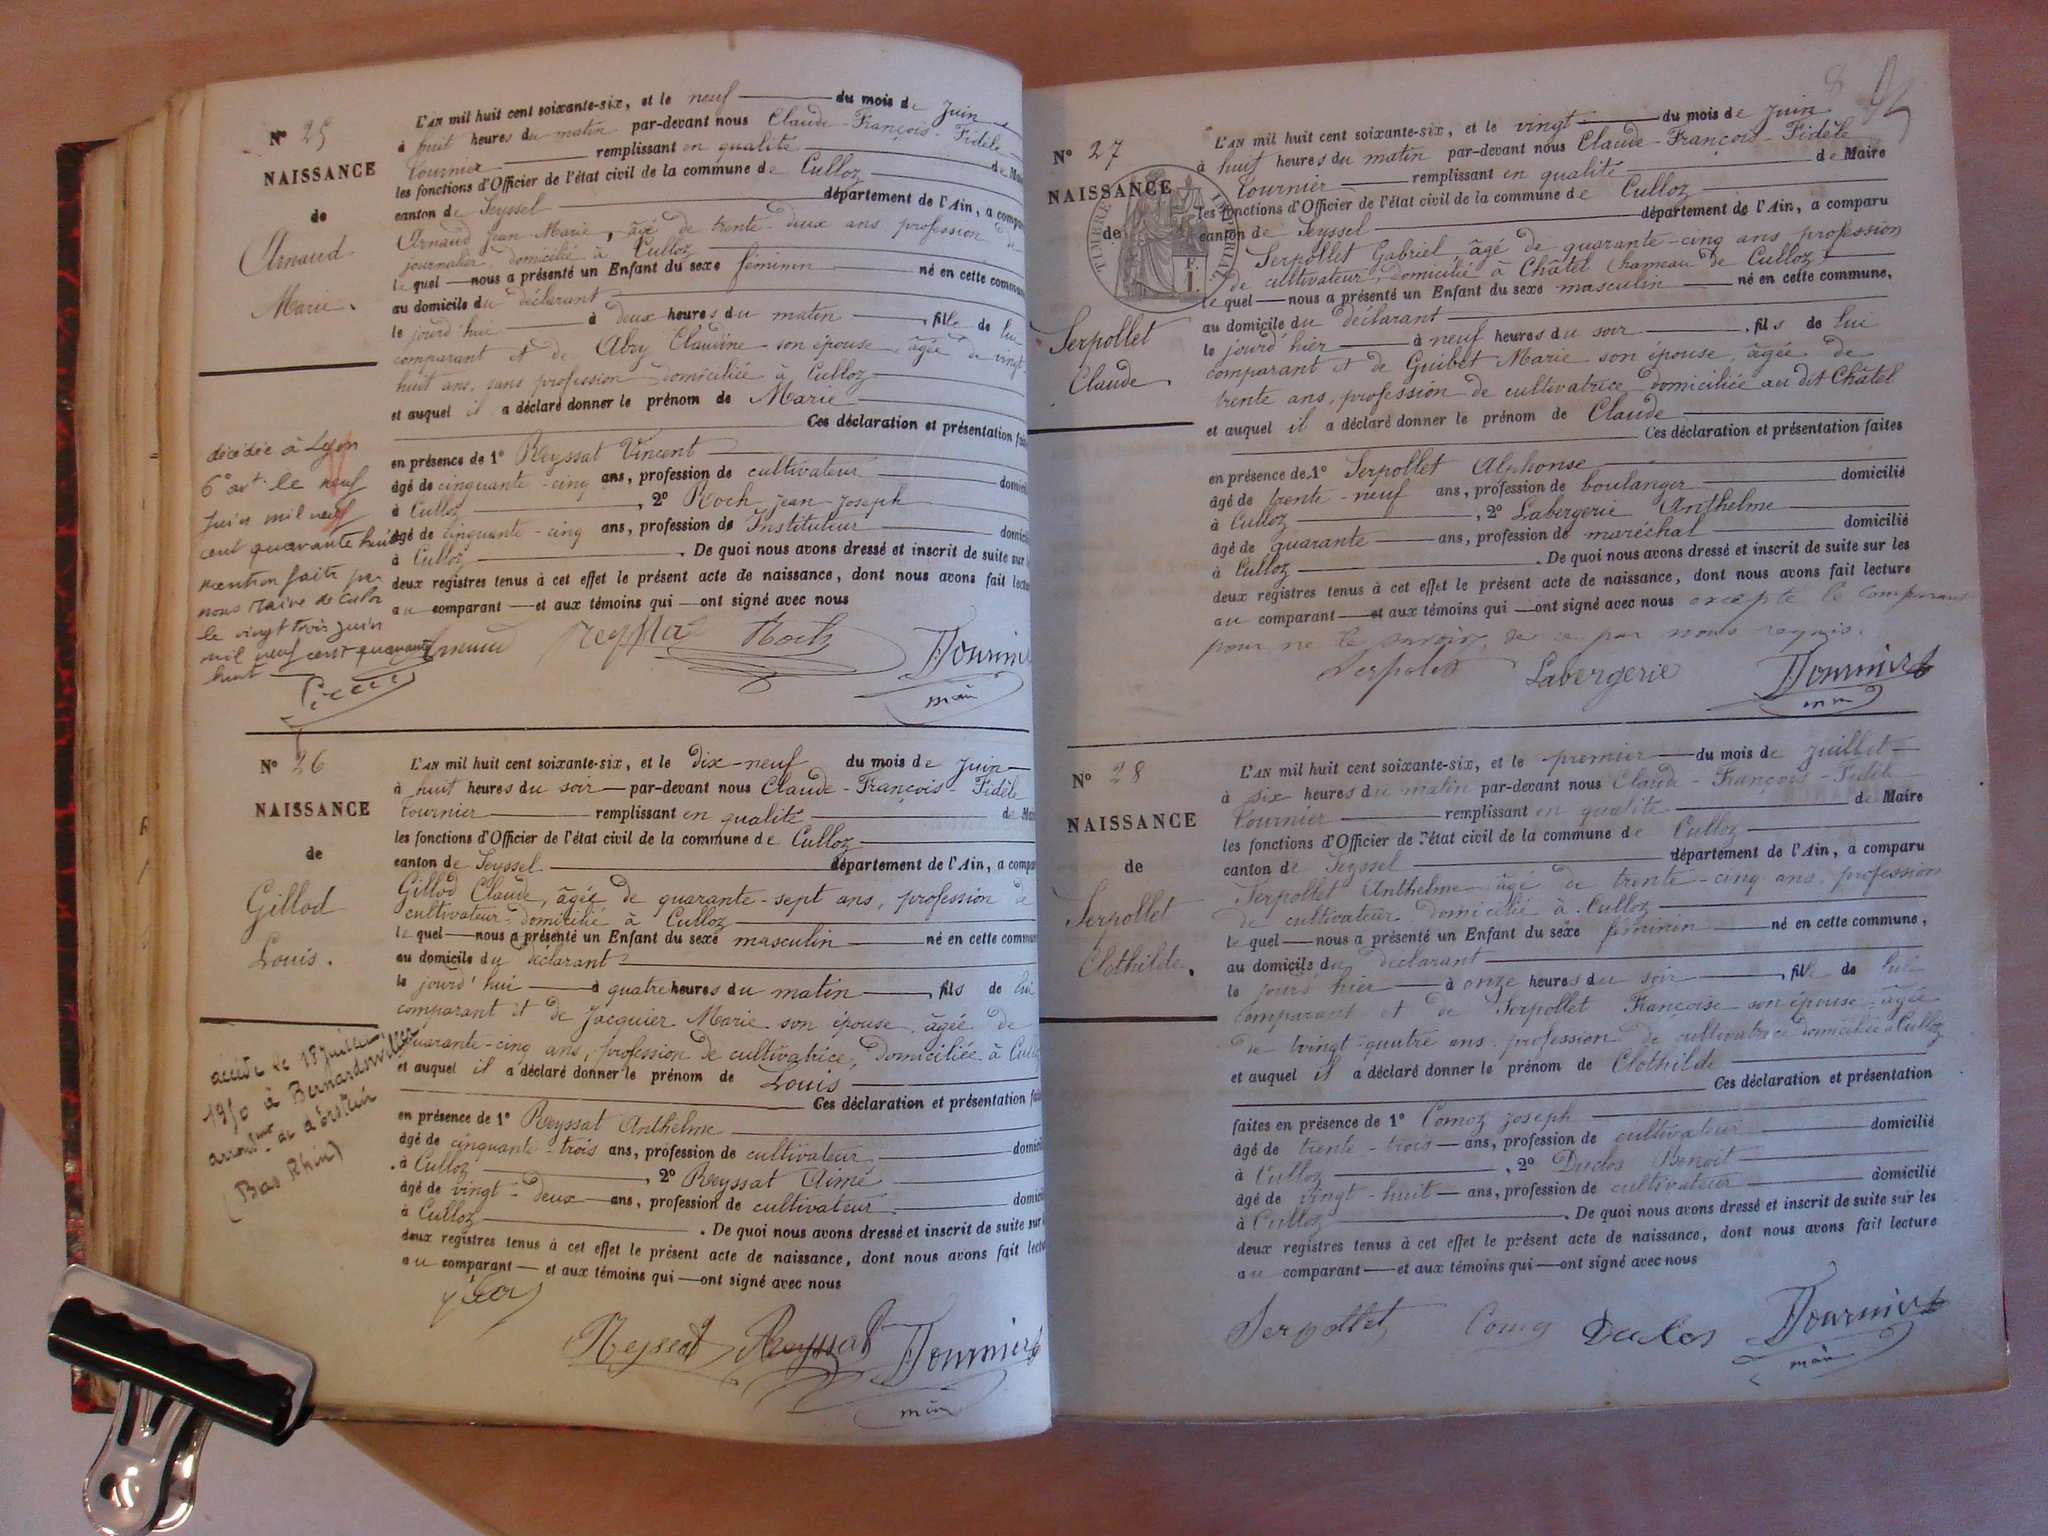 N° 25
NAISSANCE
de
Arnaud
Marie.
L'AN mil huit cent soixante-six, et le neuf du mois de Juin
à huit heures du matin par-devant nous Claude-François-Fidèle
Tournier remplissant en qualité de
les fonctions d'Officier de l'état civil de la commune de Culloz
canton de Seyssel département de l'Ain, a
Arnaud Jean Marie, âgé de trente-deux ans profession de
journalier, domicilié à Culloz
le quel nous a présenté un Enfant du sexe féminin né en cette
au domicile du déclarant
le jourd'hui à deux heures du matin, fille de lui
comparant et de Abry Claudine son épouse, âgée de vingt-
huit ans, sans profession domiciliée à Culloz
et auquel il a déclaré donner le prénom de Marie
Ces déclaration et présentation
en présence de 1° Reyssat Vincent
âgé de cinquante-cinq ans, profession de cultivateur
à Culloz, 2° Roch Jean Joseph
âgé de cinquante-cinq ans, profession de Instituteur
à Culloz. De quoi nous avons dressé et inscrit de suite sur
deux registres tenus à cet effet le présent acte de naissance, dont nous avons fait
au comparant et aux témoins qui ont signé avec nous
Roch Tournier
maire
décédée à Lyon
6° art. le neuf
Juin mil neuf
cent quarante huit
mention faite par
nous Maire de Culoz
le vingt trois juin
mil neuf cent quarante
huit
N° 26
NAISSANCE
de
Gillod
Louis.
L'AN mil huit cent soixante-six, et le dix-neuf du mois de Juin
à huit heures du soir par-devant nous Claude-François-Fidèle
Tournier remplissant en qualité de
les fonctions d'Officier de l'état civil de la commune de Culloz
canton de Seyssel département de l'Ain, a
Gillod Claude, âgée de quarante-sept ans, profession de
cultivateur domicilié à Culloz
le quel nous a présenté un Enfant du sexe masculin né en cette
au domicile du déclarant
le jourd'hui à quatre heures du matin, fils de lui
comparant et de Jacquier Marie son épouse, âgée de
quarante-cinq ans, profession de cultivatrice, domiciliée à
et auquel il a déclaré donner le prénom de Louis
Ces déclaration et présentation
en présence de 1° Reyssat Anthelme
âgé de cinquante-trois ans, profession de cultivateur
à Culloz, 2° Reyssat Aimé
âgé de vingt-deux ans, profession de cultivateur
à Culloz. De quoi nous avons dressé et inscrit de suite sur
deux registres tenus à cet effet le présent acte de naissance, dont nous avons fait
au comparant et aux témoins qui ont signé avec nous
Reyssat Reyssat Tournier
maire
décédé le 18 juillet
1950 à Bernardsviller
arrondt d'Erstein
(Bas Rhin)
N° 27
NAISSANCE
de
TIMBRE IMPERIAL
Serpollet
Claude
L'AN mil huit cent soixante-six, et le vingt du mois de Juin
à huit heures du matin par-devant nous Claude-François-Fidèle
Tournier remplissant en qualité de Maire
les fonctions d'Officier de l'état civil de la commune de Culloz
canton de Seyssel département de l'Ain, a comparu
Serpollet Gabriel, âgé de quarante-cinq ans profession
de cultivateur, domicilié à Châtel (hameau de Culloz)
le quel nous a présenté un Enfant du sexe masculin né en cette commune,
au domicile du déclarant
le jourd'hier à neuf heures du soir, fils de lui
comparant et de Guibet Marie son épouse, âgée de
trente ans, profession de cultivatrice domiciliée au dit Châtel
et auquel il a déclaré donner le prénom de Claude
Ces déclaration et présentation faites
en présence de 1° Serpollet Alphonse
âgé de trente-neuf ans, profession de boulanger domicilié
à Culloz, 2° Labergerie Anthelme
âgé de quarante ans, profession de maréchal domicilié
à Culloz. De quoi nous avons dressé et inscrit de suite sur les
deux registres tenus à cet effet le présent acte de naissance, dont nous avons fait lecture
au comparant et aux témoins qui ont signé avec nous excepté le comparant
pour ne le savoir, de ce par nous requis.
Serpollet Labergerie Tournier
maire
N° 28
NAISSANCE
de
Serpollet
Clothilde.
L'AN mil huit cent soixante-six, et le premier du mois de juillet
à six heures du matin par-devant nous Claude-François-Fidèle
Tournier remplissant en qualité de Maire
les fonctions d'Officier de l'état civil de la commune de Culloz
canton de Seyssel département de l'Ain, a comparu
Serpollet Anthelme âgé de trente-cinq ans, profession
de cultivateur domicilié à Culloz
le quel nous a présenté un Enfant du sexe féminin né en cette commune,
au domicile du déclarant
le jourd'hier à onze heures du soir, fille de lui
comparant et de Serpollet Françoise son épouse âgée
de vingt-quatre ans profession de cultivatrice domiciliée à Culloz
et auquel il a déclaré donner le prénom de Clothilde
Ces déclaration et présentation
faites en présence de 1° Comoz Joseph
âgé de trente-trois ans, profession de cultivateur domicilié
à Culloz, 2° Duclos Benoit
âgé de vingt-huit ans, profession de cultivateur domicilié
à Culloz. De quoi nous avons dressé et inscrit de suite sur les
deux registres tenus à cet effet le présent acte de naissance, dont nous avons fait lecture
au comparant et aux témoins qui ont signé avec nous
Serpollet Comoz Duclos Tournier
maire